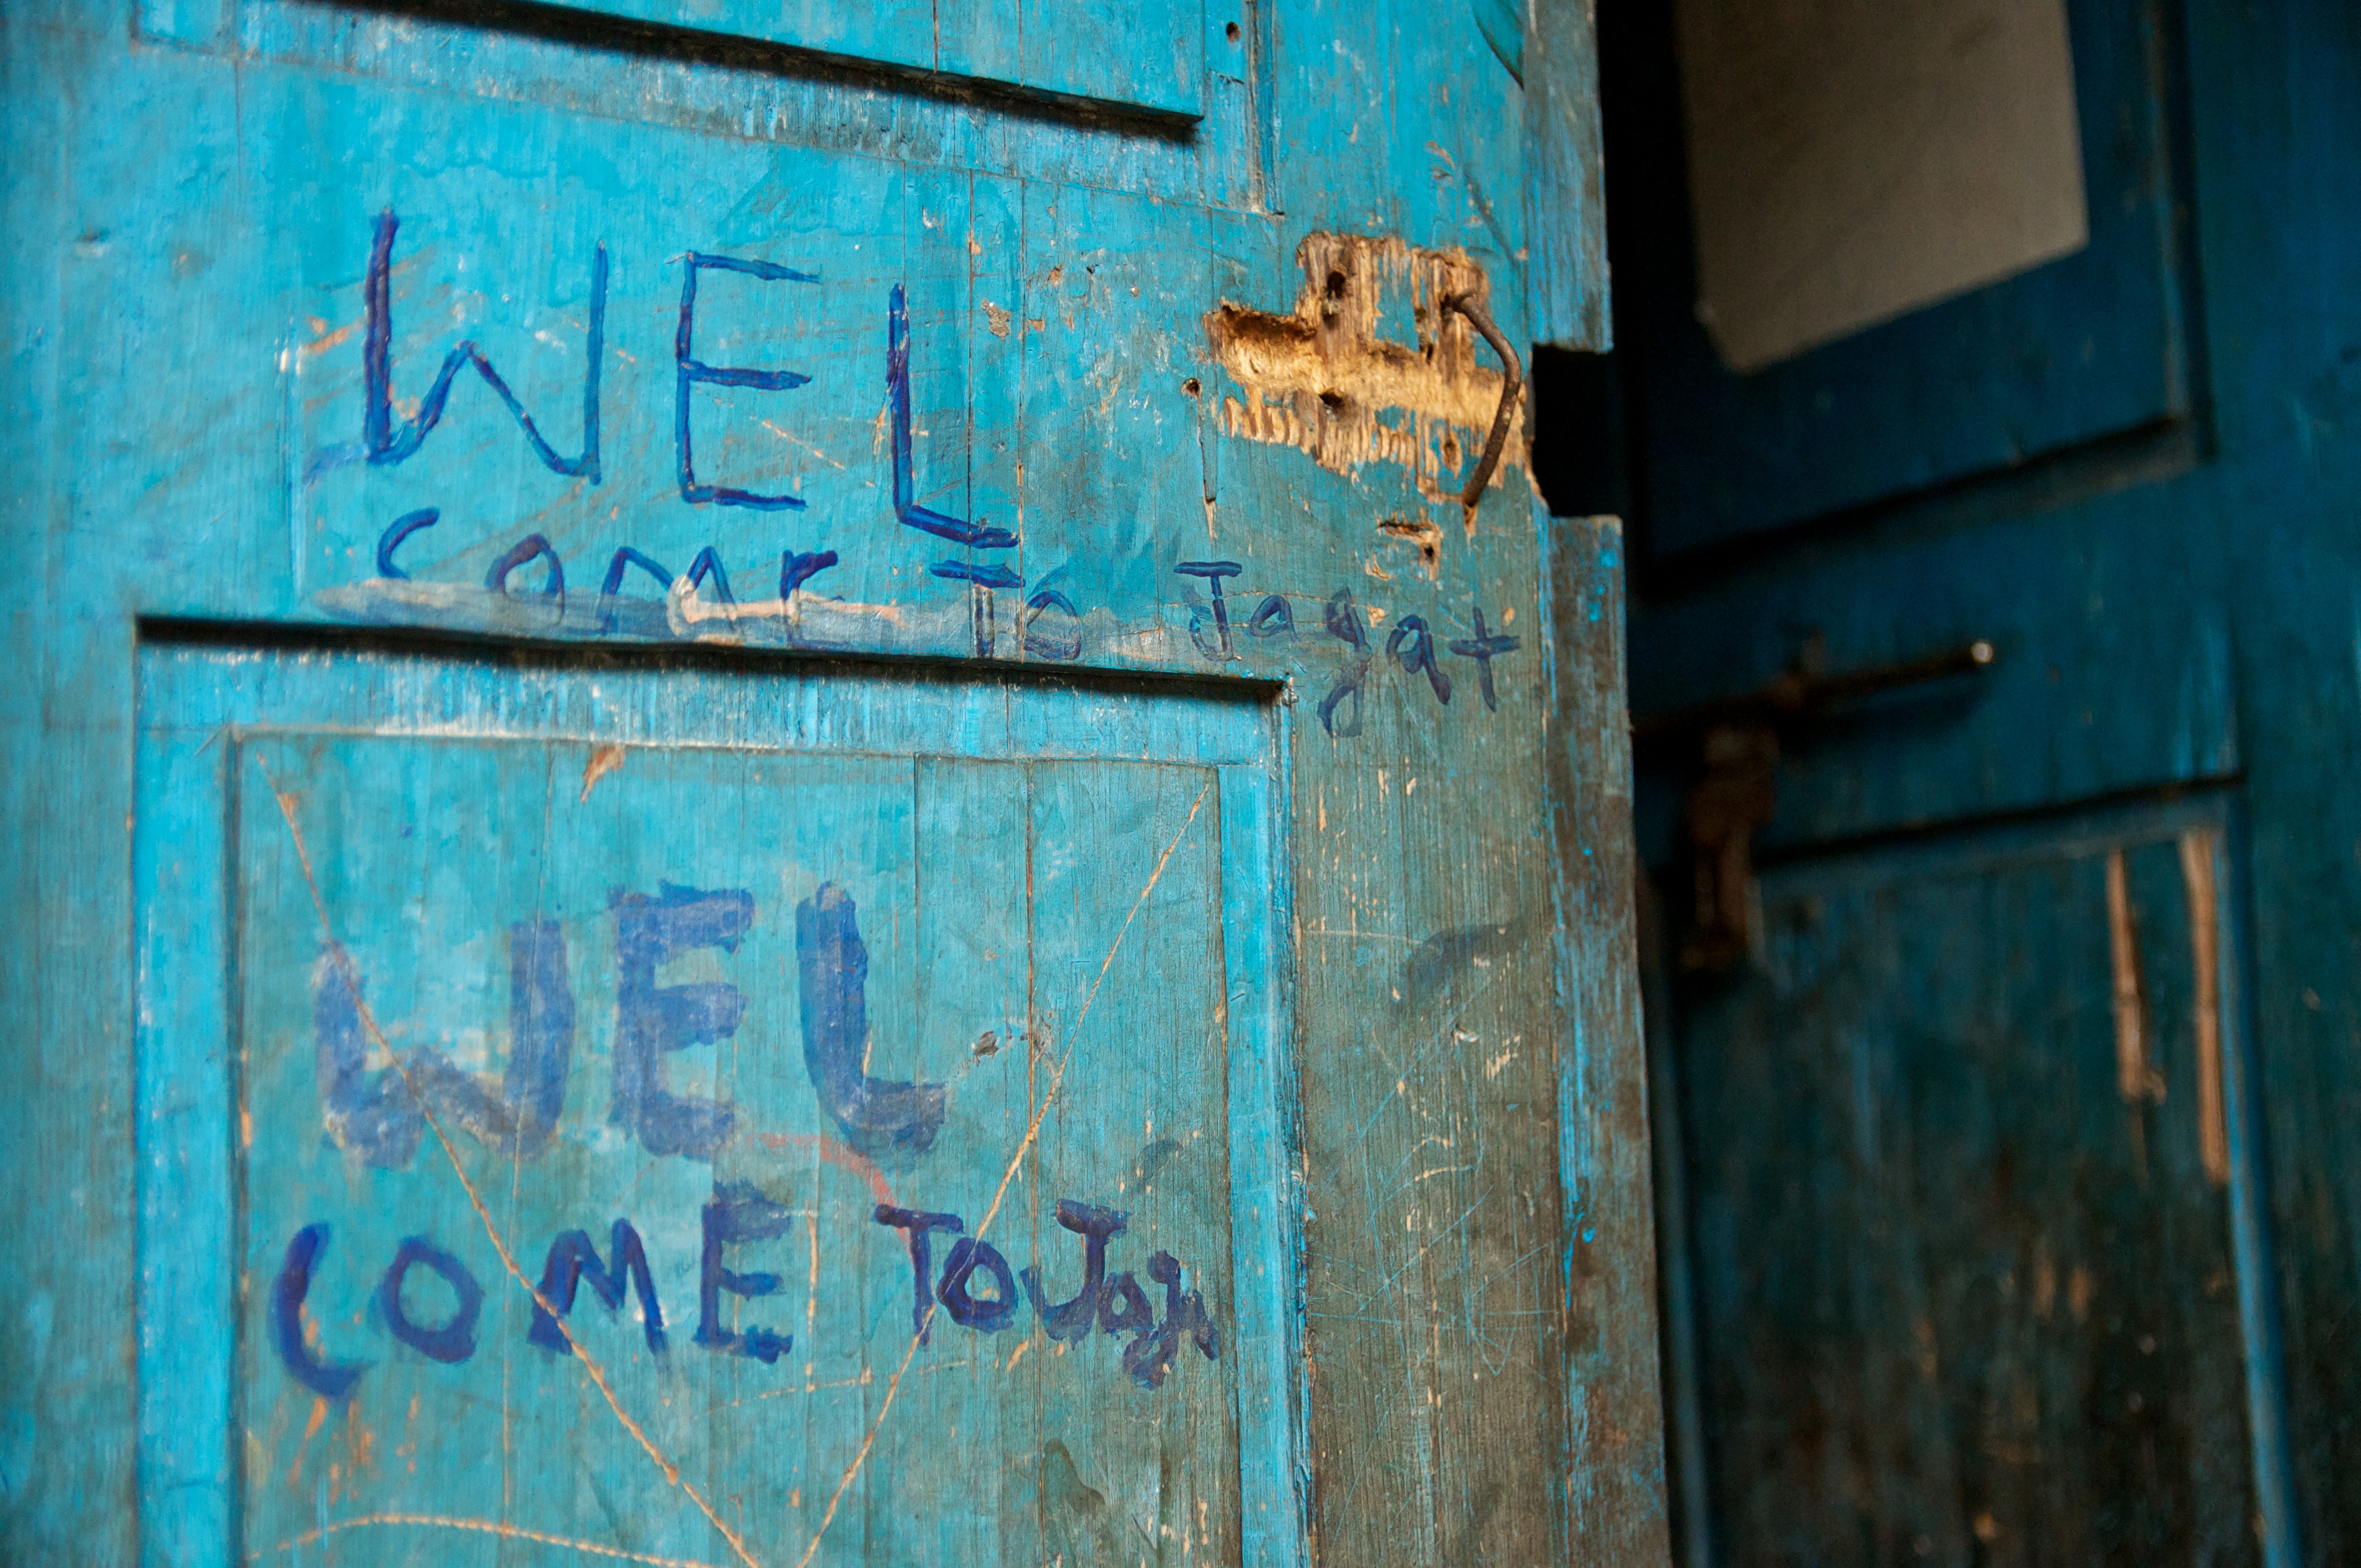 WEL
come To Jagat
WEL
COME TO Jag